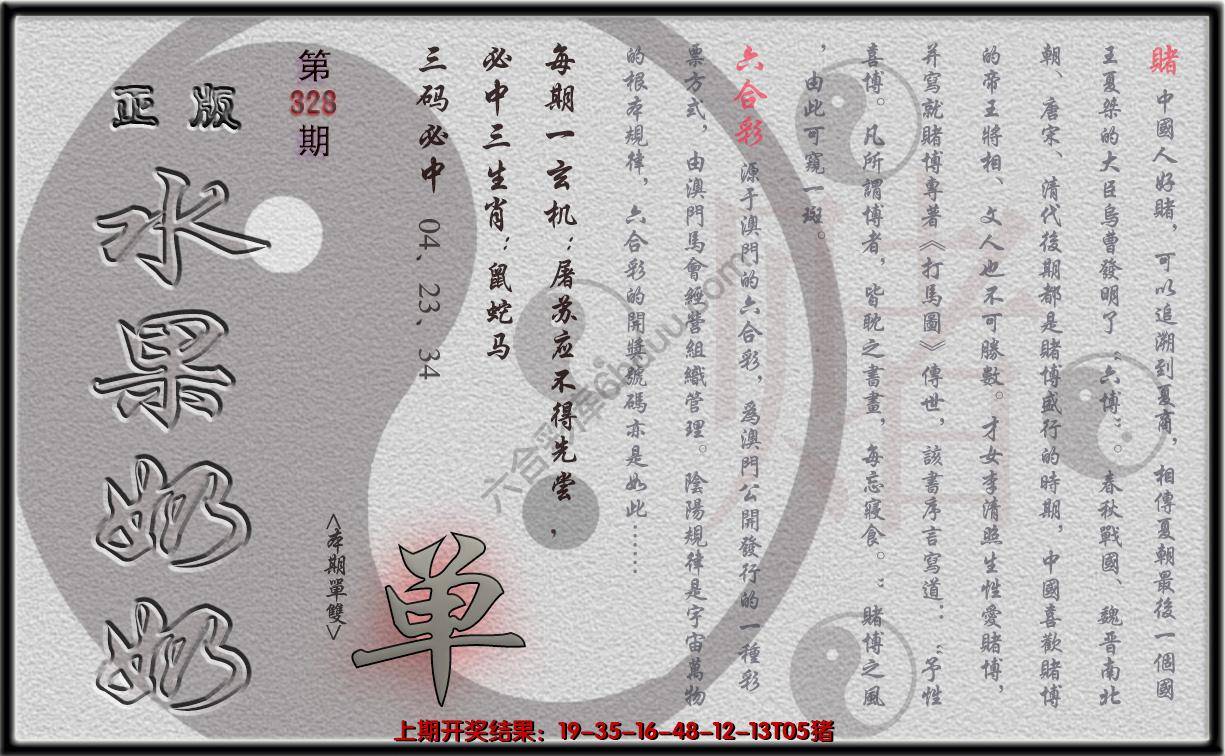 賭 中國人好賭，可以追溯到夏商，相傳夏朝最後一個國
王夏桀的大臣烏曹發明了“六博”。春秋戰國、魏晋南北
朝、唐宋、清代後期都是賭博盛行的時期，中國喜歡賭博
的帝王將相、文人也不可勝數。才女李清照生性愛賭博，
并寫就賭博專著《打馬圖》傳世，該書序言寫道：“予性
喜博。凡所謂博者，皆耽之書畫，每忘寢食。”賭博之風
，由此可窺一斑。
六合彩 源于澳門的六合彩，爲澳門公開發行的一種彩
票方式，由澳門馬會經營組織管理。陰陽規律是宇宙萬物
的根本規律，六合彩的開獎號碼亦是如此……
每期一玄机：屠苏应不得先尝，
必中三生肖：鼠蛇马
三码必中 04、23、34
第
328
期
<本期單雙>
单
正版
水果奶奶
上期开奖结果：19-35-16-48-12-13T05猪